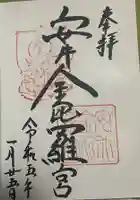 奉拝
安井金毘羅宮
令和五年
一月廿五日